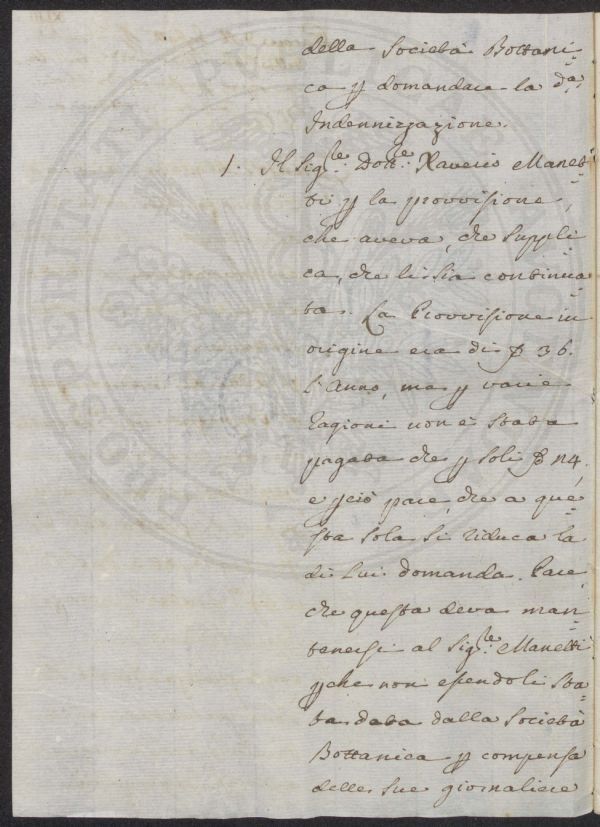 della Società Bottani=
ca p domandare la da:
Indennizzazione.
1. Il Sigre. Dotte. Xaverio Manet=
ti p la provvisione,
che aveva, che suppli=
ca, che li sia continua=
ta. La Provvisione in
origine era di 36.
l'Anno, ma p varie
Ragioni non è stata
pagata che p soli 24,
e pciò pare, che a que=
sta sola si riduca la
di lui domanda. Pare
che questa deva man=
tenersi al Sigre. Manetti
pche non essendoli sta=
ta data dalla Società
Bottanica p compensa
delle sue giornaliere